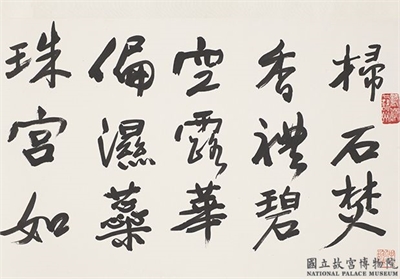 掃石焚
香禮碧
空露華
偏濕蘂
珠宮如
國立故宮博物院
NATIONAL PALACE MUSEUM